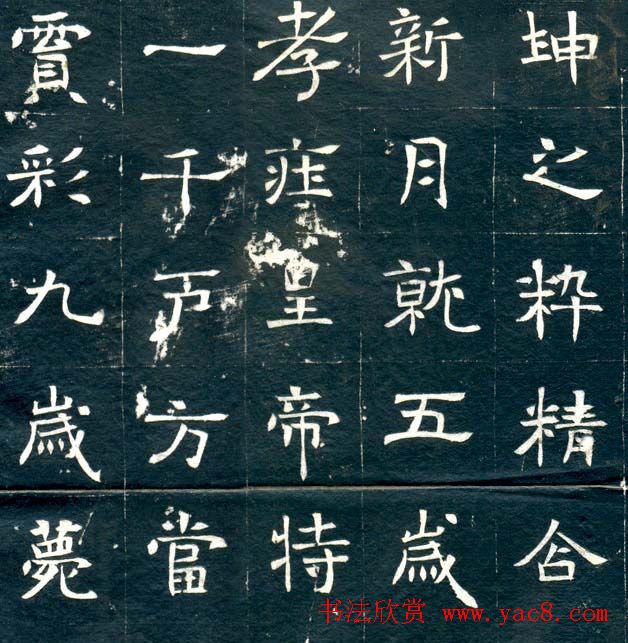 坤之粹精合
新月就五歲
孝疘皇帝特
一千戸方當
賈彩九歲薨
书法欣赏 www.yac8.com